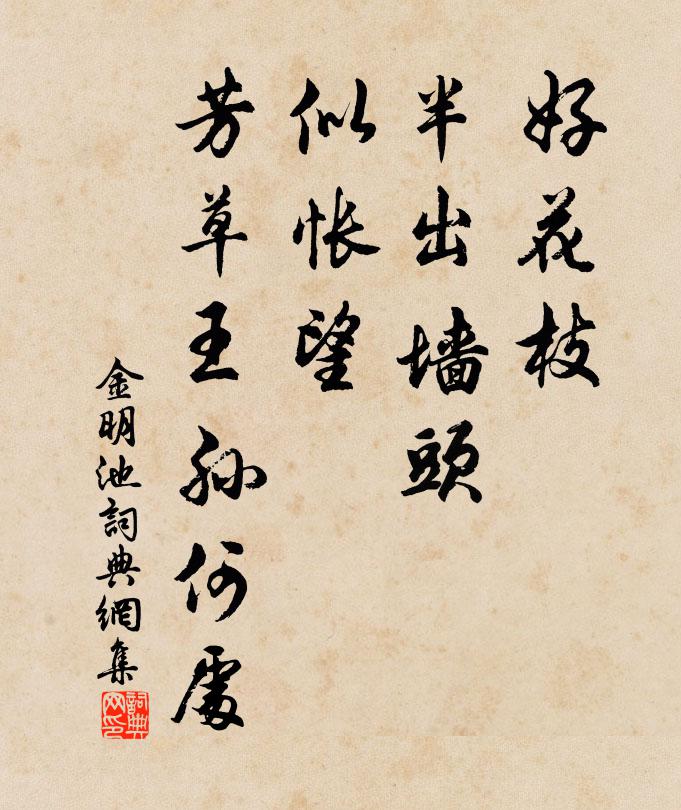 好花枝
半出墙頭
似怅望
芳草王孙何處
金明池詞典網集
詞典
网印